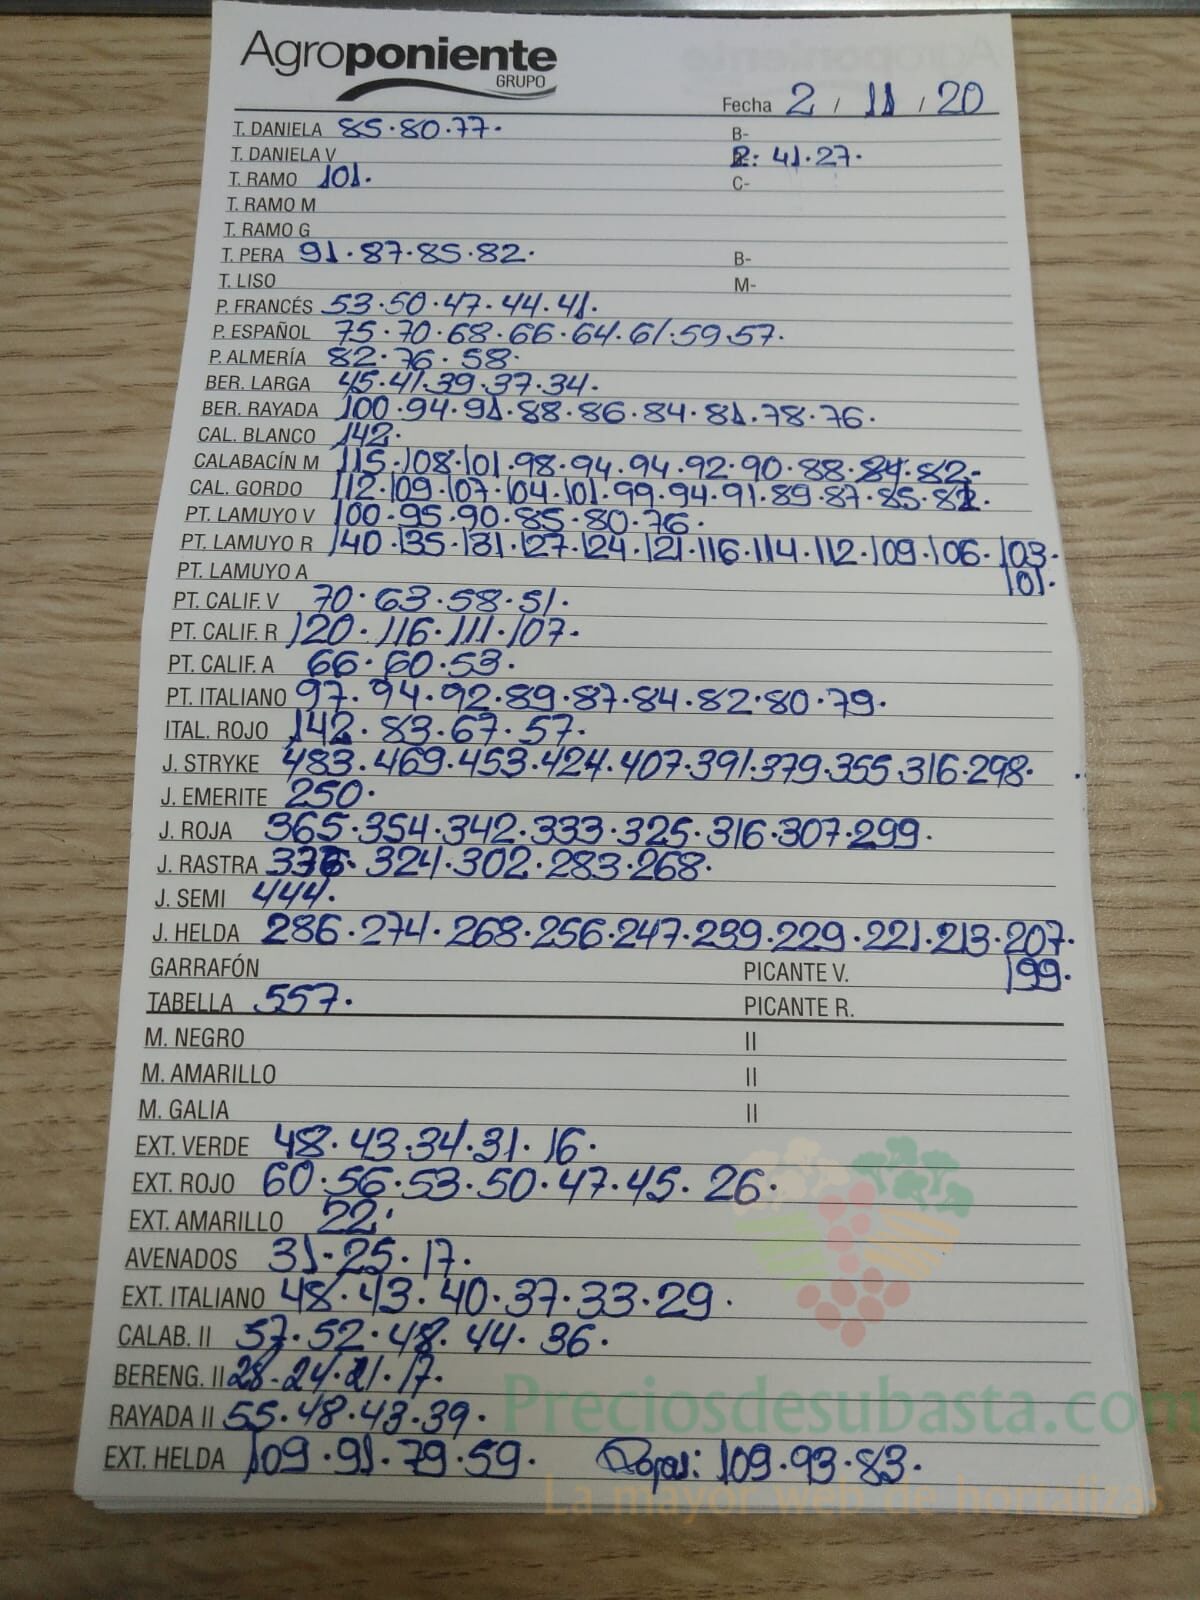 Agroponiente
GRUPO
Fecha 2 / 11 / 20
T. DANIELA 85·80·77· B-
T. DANIELA V 2: 41·27·
T. RAMO 101· C-
T. RAMO M
T. RAMO G
T. PERA 91·87·85·82· B-
T. LISO M-
P. FRANCÉS 53·50·47·44·41·
P. ESPAÑOL 75·70·68·66·64·61·59·57·
P. ALMERÍA 82·76·58·
BER. LARGA 45·41·39·37·34·
BER. RAYADA 100·94·91·88·86·84·81·78·76·
CAL. BLANCO 142·
CALABACÍN M 115·108·101·98·94·94·92·90·88·84·82·
CAL. GORDO 112·109·107·104·101·99·94·91·89·87·85·82·
PT. LAMUYO V 100·95·90·85·80·76·
PT. LAMUYO R 140·135·131·127·124·121·116·114·112·109·106·103·
PT. LAMUYO A 101·
PT. CALIF. V 70·63·58·51·
PT. CALIF. R 120·116·111·107·
PT. CALIF. A 66·60·53·
PT. ITALIANO 97·94·92·89·87·84·82·80·79·
ITAL. ROJO 142·83·67·57·
J. STRYKE 483·469·453·424·407·391·379·355·316·298·
J. EMERITE 250·
J. ROJA 365·354·342·333·325·316·307·299·
J. RASTRA 324·302·283·268·
J. SEMI 444·
J. HELDA 286·274·268·256·247·239·229·221·213·207·
GARRAFÓN PICANTE V. 199·
TABELLA 557· PICANTE R.
M. NEGRO II
M. AMARILLO II
M. GALIA II
EXT. VERDE 48·43·34·31·16·
EXT. ROJO 60·56·53·50·47·45·26·
EXT. AMARILLO 22·
AVENADOS 31·25·17·
EXT. ITALIANO 48·43·40·37·33·29·
CALAB. II 57·52·48·44·36·
BERENG. II 28·24·21·17·
RAYADA II 55·48·43·39·
Preciosdesubasta.com
EXT. HELDA 109·91·79·59· Rojas: 109·93·83·
La mayor web de hortalizas